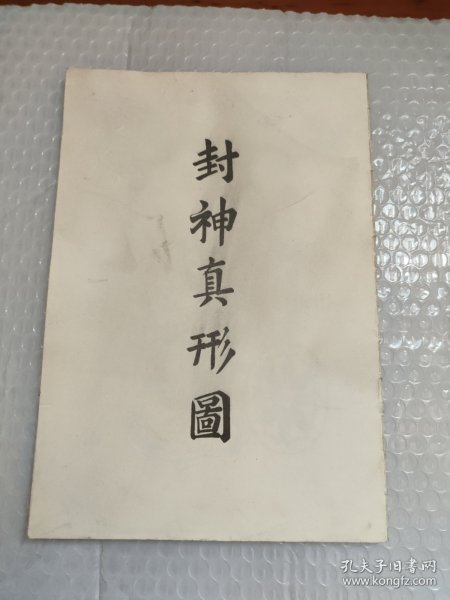 封神真形圖
孔夫子旧书网
www.kongfz.com